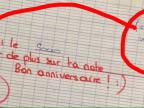 i le
de plus sur ta note
Bon anniversaire ! :)